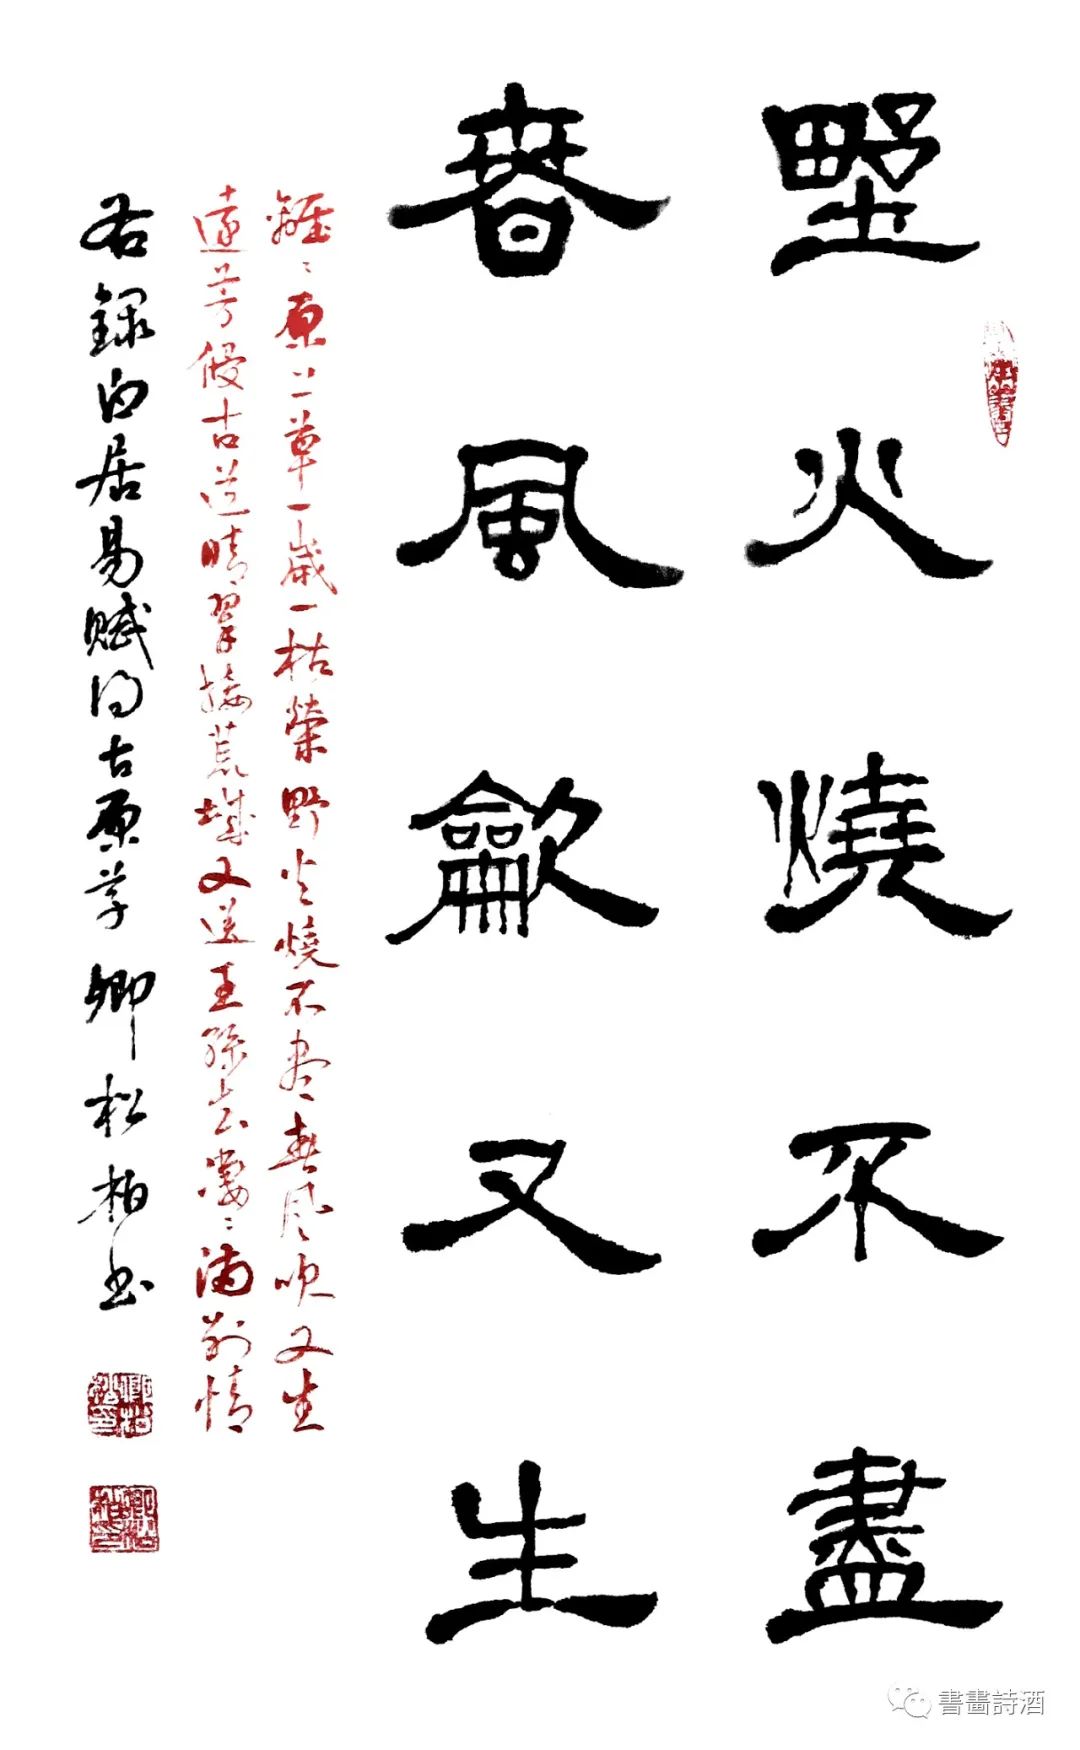 野火燒不盡
春風龡又生
離〻原上草一歲一枯榮野火燒不盡春風吹又生
遠芳侵古道晴翠接荒城又送王孫去萋〻滿別情
右錄白居易賦得古原草 卿松柏書
書畫詩酒